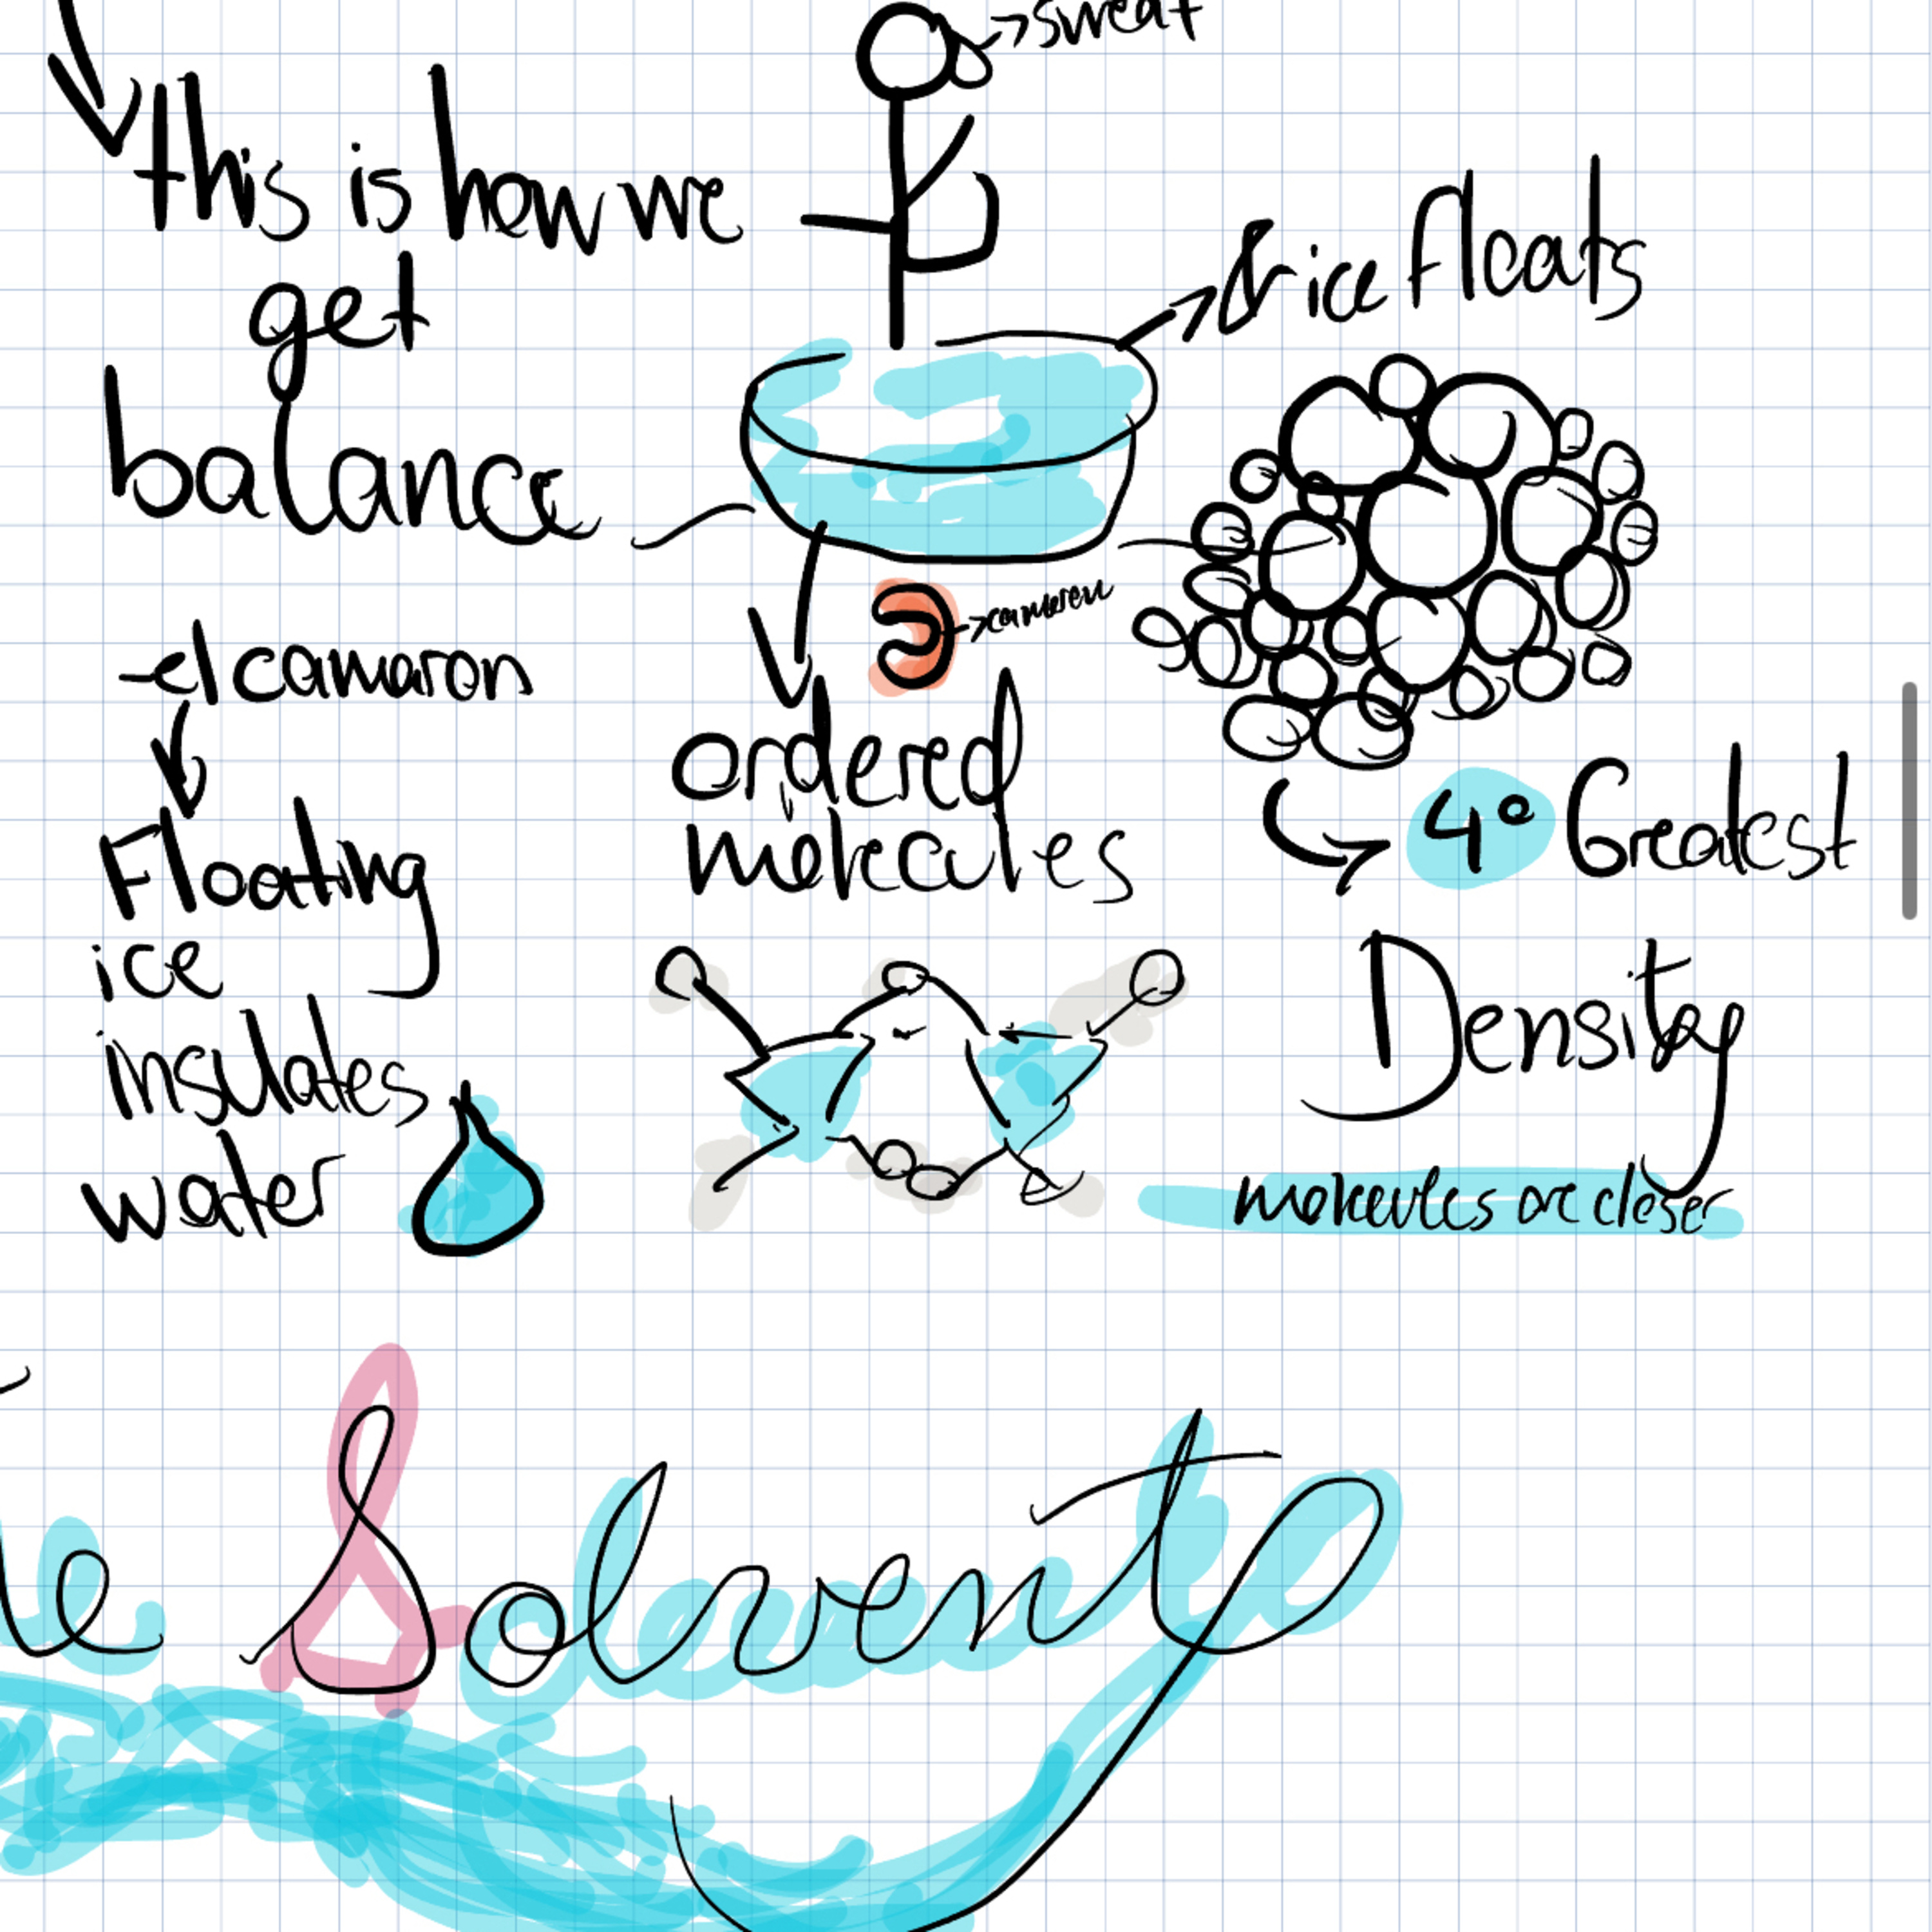 sweat
this is how we
get
balance
ice floats
camaron
-el camaron
Floating
ice
insulates
water
ordered
molecules
4° Greatest
Density
molecules are closer
Solvent